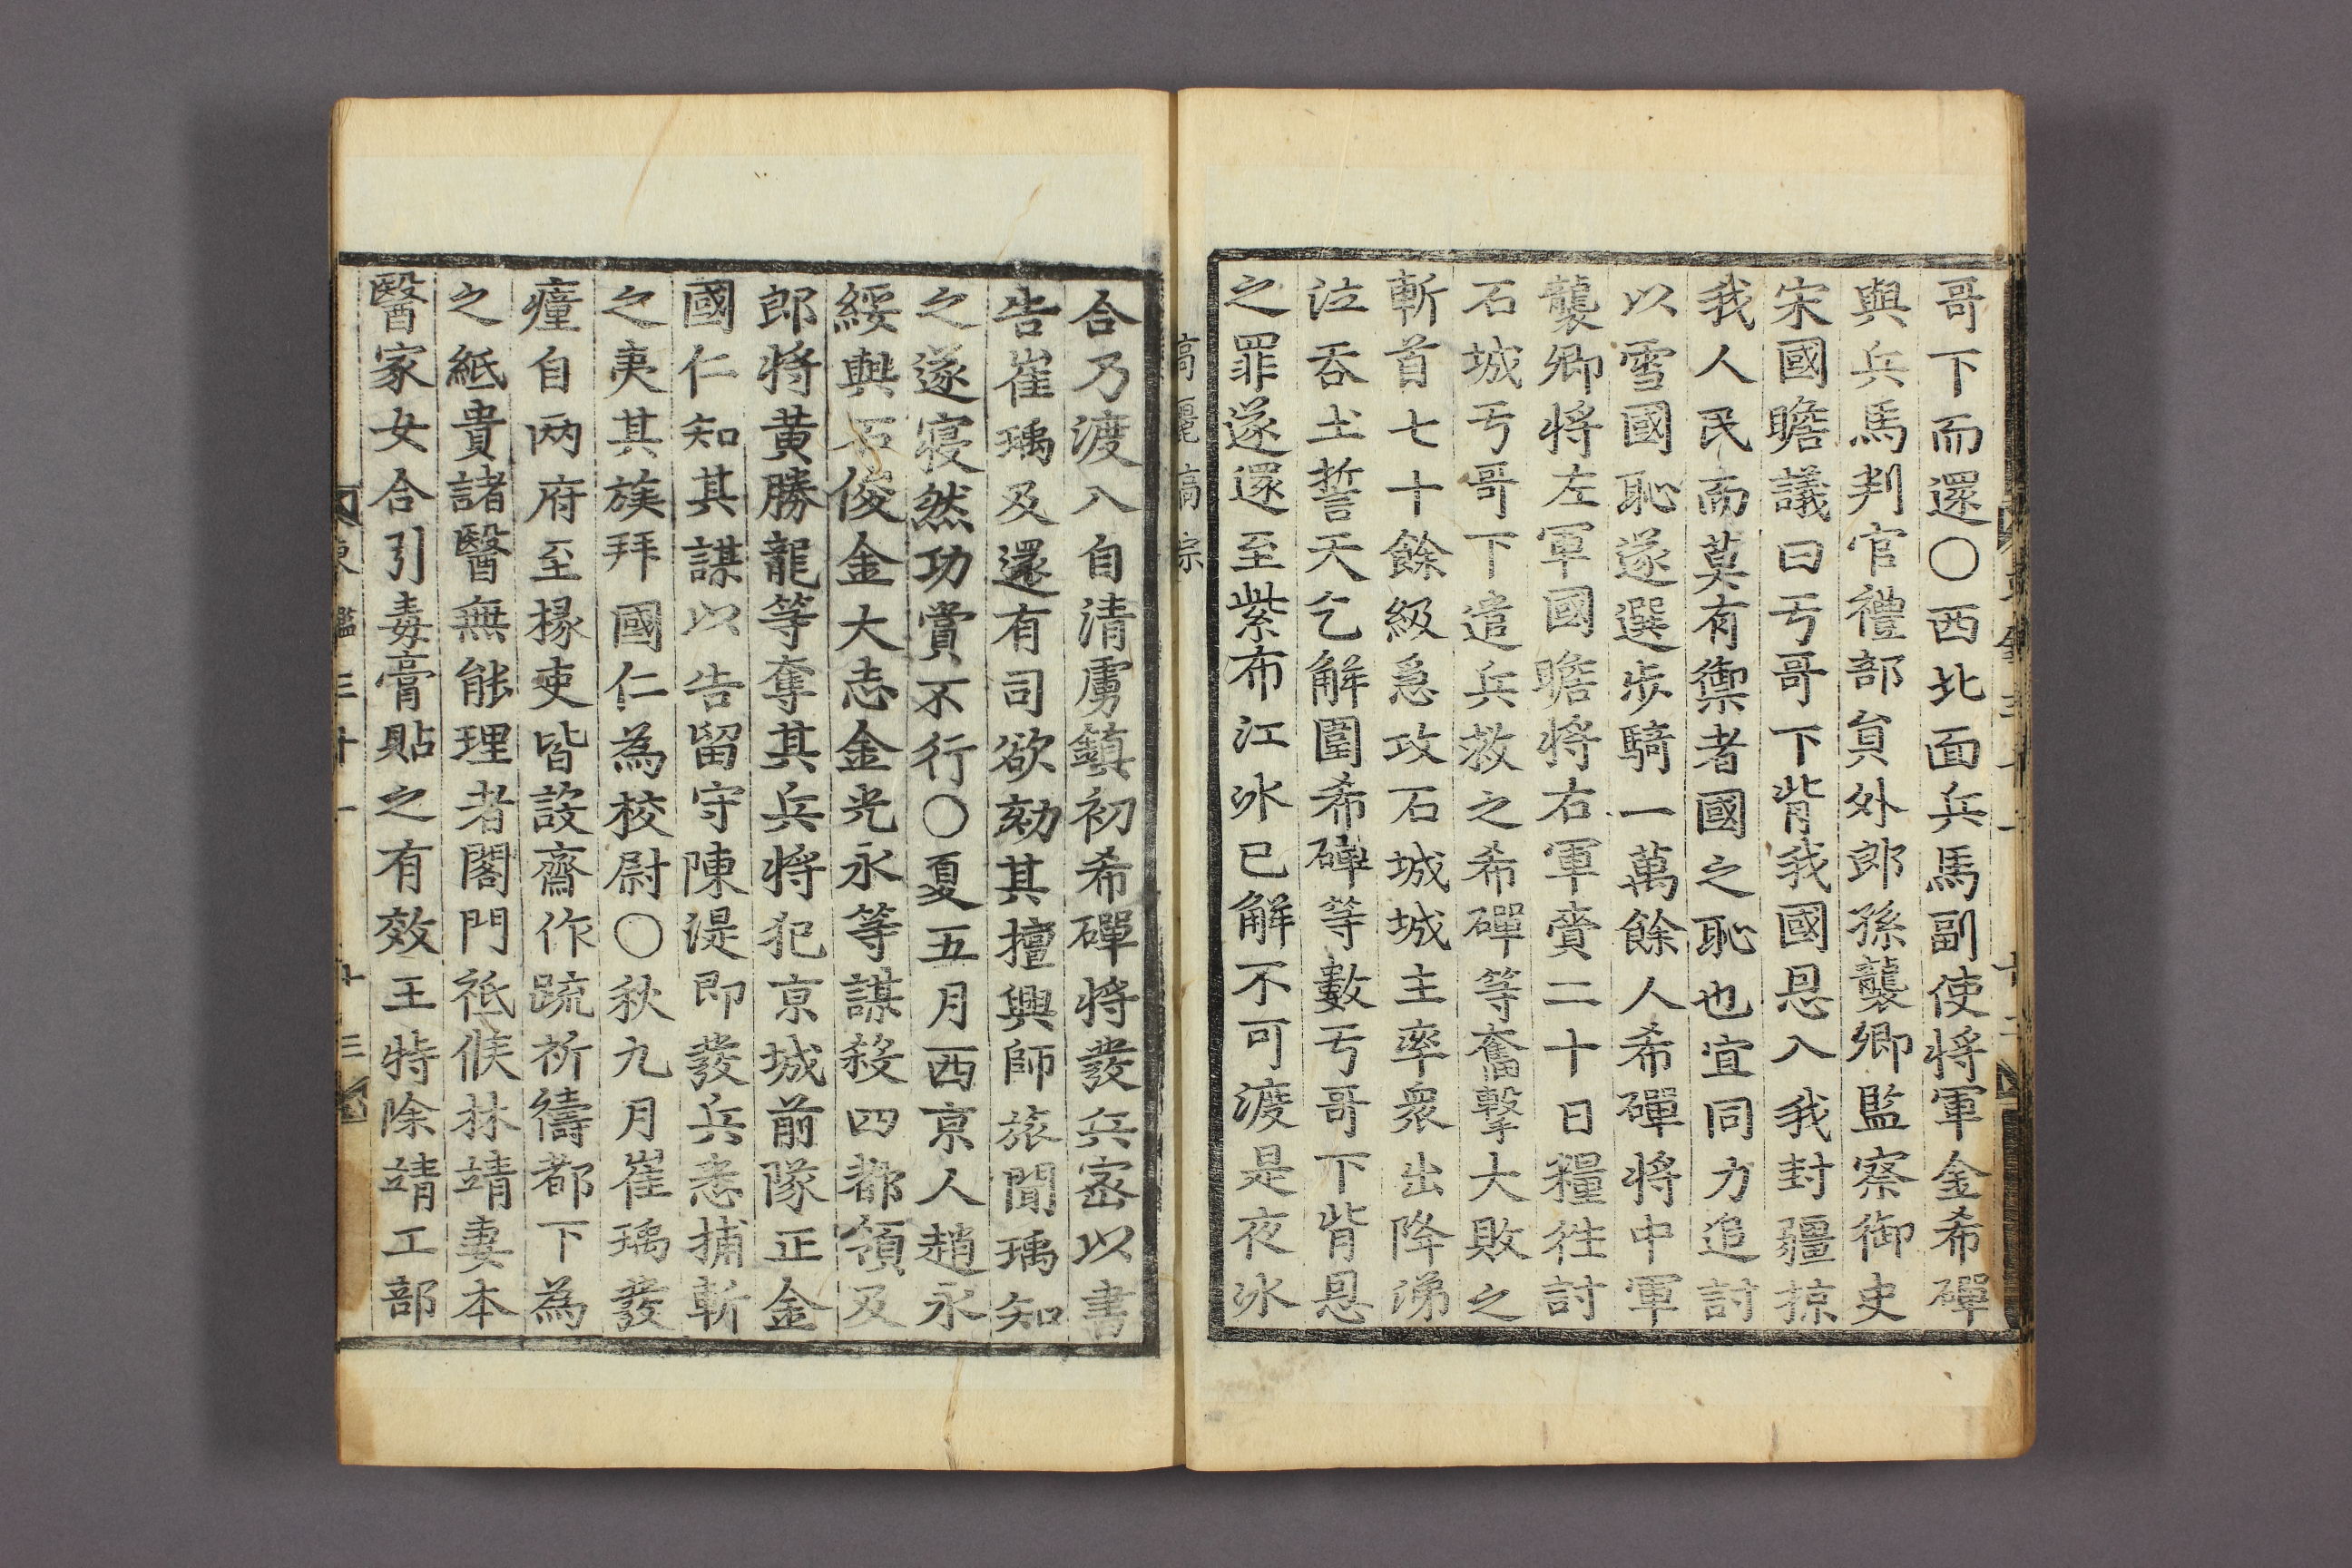 哥下而還○西北面兵馬副使將軍金希磾
與兵馬判官禮部貟外郎孫襲卿監察御史
宋國瞻議曰亐哥下背我國恩入我封疆掠
我人民而莫有禦者國之恥也宜同力追討
以雪國恥遂選步騎一萬餘人希磾將中軍
襲卿將左軍國瞻將右軍賫二十日糧徃討
石城亐哥下遣兵救之希磾等奮擊大敗之
斬首七十餘級急攻石城城主率衆出降涕
泣吞土誓天乞解圍希磾等數亐哥下背恩
之罪遂還至紫布江氷已解不可渡是夜氷
高麗高宗
合乃渡入自清虜鎮初希磾將發兵宻以書
告崔瑀及還有司欲劾其擅興師旅聞瑀知
之遂寝然功賞不行○夏五月西京人趙永
綏與石俊金大志金光永等謀殺四都領及
郎將黃勝龍等奪其兵將犯京城前隊正金
國仁知其謀以告留守陳湜即發兵悉捕斬
之夷其族拜國仁為校尉○秋九月崔瑀發
瘇自两府至掾吏皆設齋作䟽祈禱都下為
之紙貴諸醫無能理者閣門祗候林靖妻本
醫家女合引毒膏貼之有效王特除靖工部
東鑑三十一 十三